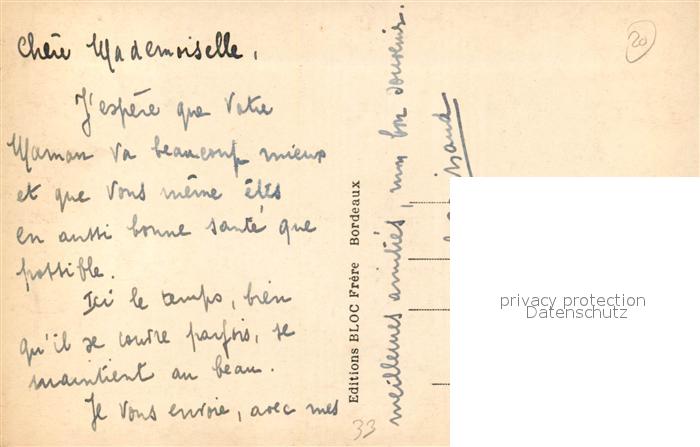 Chère Mademoiselle,
J'espère que Votre
Maman va beaucoup mieux
et que Vous même êtes
en aussi bonne santé que
possible.
Ici le temps, bien
qu'il se couvre parfois, se
maintient au beau.
Je Vous envoie, avec mes
meilleures amitiés, mon bon souvenir.
Editions BLOC Frère Bordeaux
20
33
privacy protection
Datenschutz